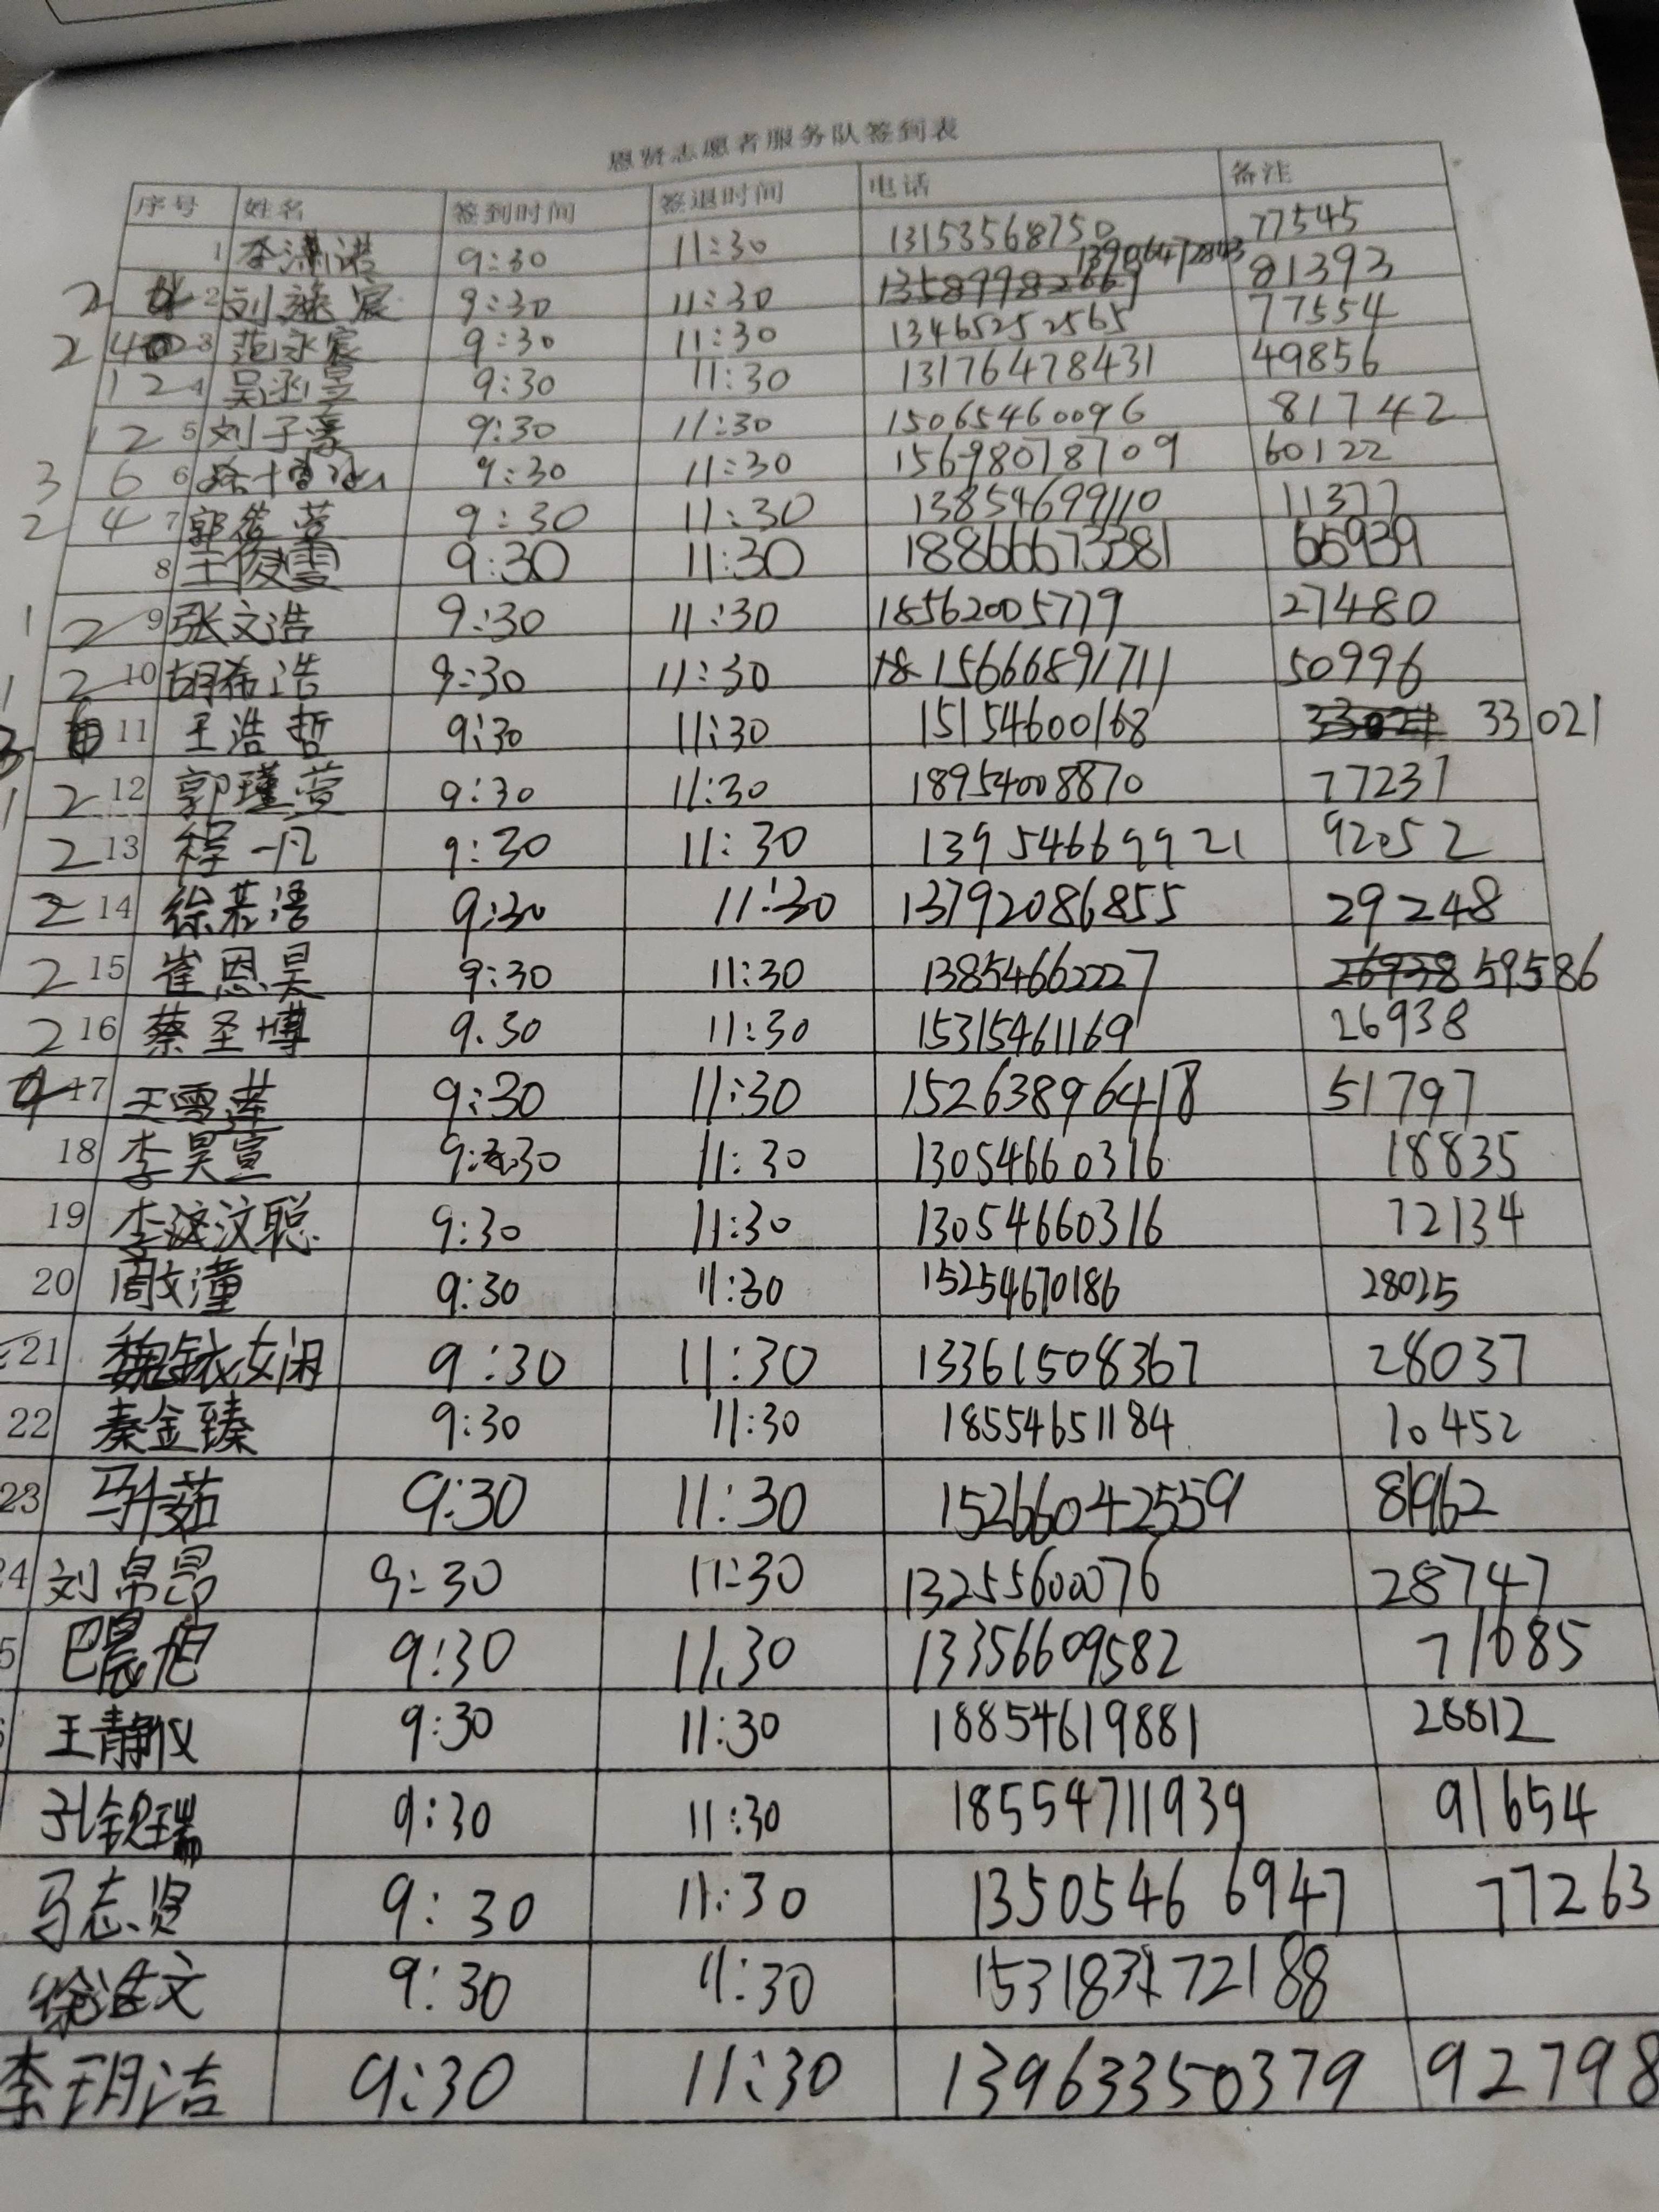 恩贤志愿者服务队签到表
序号 姓名 签到时间 签退时间 电话 备注
1 李潇诺 9:30 11:30 13153568750 77545
2 2 刘 宸 9:30 11:30 13906472843 81393
2 4 3 范永宸 9:30 11:30 13465252565 77554
1 2 4 吴函昱 9:30 11:30 13176478431 49856
1 2 5 刘子豪 9:30 11:30 15065460096 81742
3 6 6 9:30 11:30 156980718709 60122
2 4 7 郭 萱 9:30 11:30 13854699110 11377
8 王俊雯 9:30 11:30 18866673381 66939
1 2 9 张文浩 9:30 11:30 18562005779 27480
1 2 10 胡希浩 9:30 11:30 15666891711 50996
3 6 11 王浩哲 9:30 11:30 15154600168 33021
1 2 12 郭瑾萱 9:30 11:30 18954008870 77237
2 13 程一凡 9:30 11:30 13954669921 92052
2 14 徐若浯 9:30 11:30 13792086855 29248
2 15 崔恩昊 9:30 11:30 13854662227 59586
2 16 蔡圣博 9.30 11:30 15315461169 26938
17 王雪莲 9:30 11:30 15263896418 51797
18 李昊宣 9:30 11:30 13054660316 18835
19 李汶聪 9:30 11:30 13054660316 72134
20 周文潼 9:30 11:30 15254670186 28025
21 魏铱娴 9:30 11:30 13361508367 28037
22 秦金臻 9:30 11:30 18554651184 10452
23 马千茹 9:30 11:30 15266042559 81962
24 刘帛昂 9:30 11:30 13255600076 28747
5 巴晨旭 9:30 11.30 13356609582 71685
王静仪 9:30 11:30 18854619881 28812
孔锐瑞 9:30 11:30 18554711939 91654
马志贤 9:30 11:30 13505466947 77263
徐浩文 9:30 11:30 15318372188
李玥洁 9:30 11:30 13963350379 92798